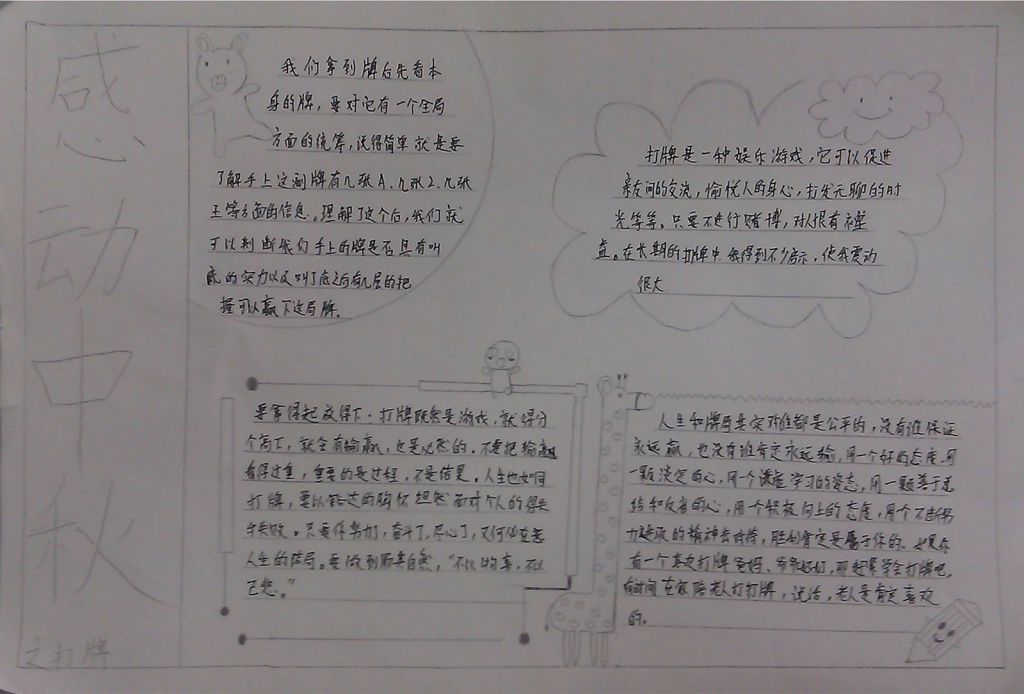 感动中秋
之打牌
我们拿到牌后先看本
身的牌，要对它有一个全局
方面的统筹，说得简单就是要
了解手上这副牌有几张A、几张2、几张
王等方面的信息。理解了这个后，我们就
可以判断我们手上的牌是否具有叫
底的实力以及叫了底之后有几层的把
握可以赢下这局牌。
打牌是一种娱乐游戏，它可以促进
亲友间的交流，愉悦人的身心，打发无聊的时
光等等。只要不进行赌博，对人很有裨
益。在长期的打牌中 我得到不少启示，使我震动
很大
要拿得起放得下。打牌既然是游戏，就得分
个高下，就会有输赢，这是必然的。不要把输赢
看得过重，重要的是过程，不是结果。人生也如同
打牌，要以豁达的胸怀坦然面对个人的得失
与失败。只要你努力了，奋斗了，尽心了，又何必在意
人生的结局。要做到顺其自然，“不以物喜，不以
己悲。”
人生和牌局其实对谁都是公平的，没有谁保证
永远赢，也没有谁肯定永远输，用一个好的态度，用
一颗淡定的心，用一个谦虚学习的姿态，用一颗善于总
结和反省的心，用个积极向上的态度，用个不断努
力进取的精神去对待，胜利肯定是属于你的。如果你
有一个喜欢打牌爸妈、爷爷奶奶，那赶紧学会打牌吧，
抽时间在家陪老人打打牌，说话，老人是肯定喜欢
的。